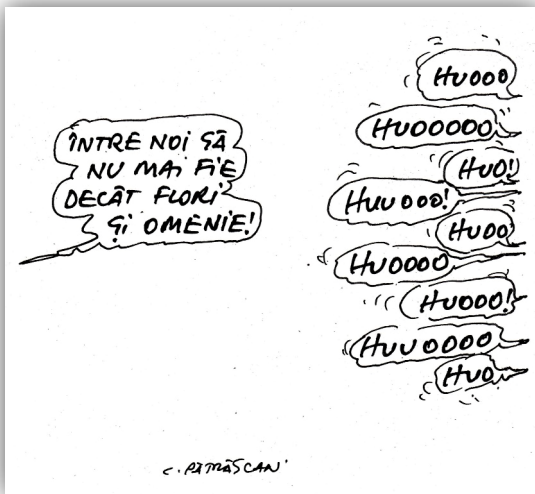 ÎNTRE NOI SĂ
NU MAI FIE
DECÂT FLORI
ȘI OMENIE!
HUOOO
HUOOOOO
HUO!
HUUOOO!
HUOO
HUOOOO
HUOOO!
HUUOOOO
HUO
C. PĂTRĂȘCAN